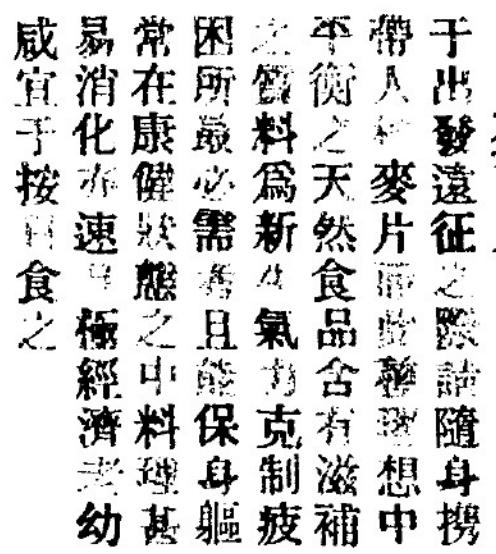 于出發遠征之際請隨身携
帶人麥片此理想中
平衡之天然食品含有滋補
之質料爲新生氣力克制疲
困所最必需者且能保身軀
常在康健狀態之中料理甚
易消化亦速且極經濟老幼
咸宜于按日食之